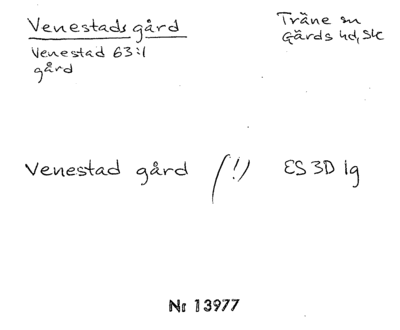 Venestads gård
Träne sn
Gärds hd, Sk
Venestad 63:1
gård
Venestad gård (!) ES 3D 1g
Nr 13977